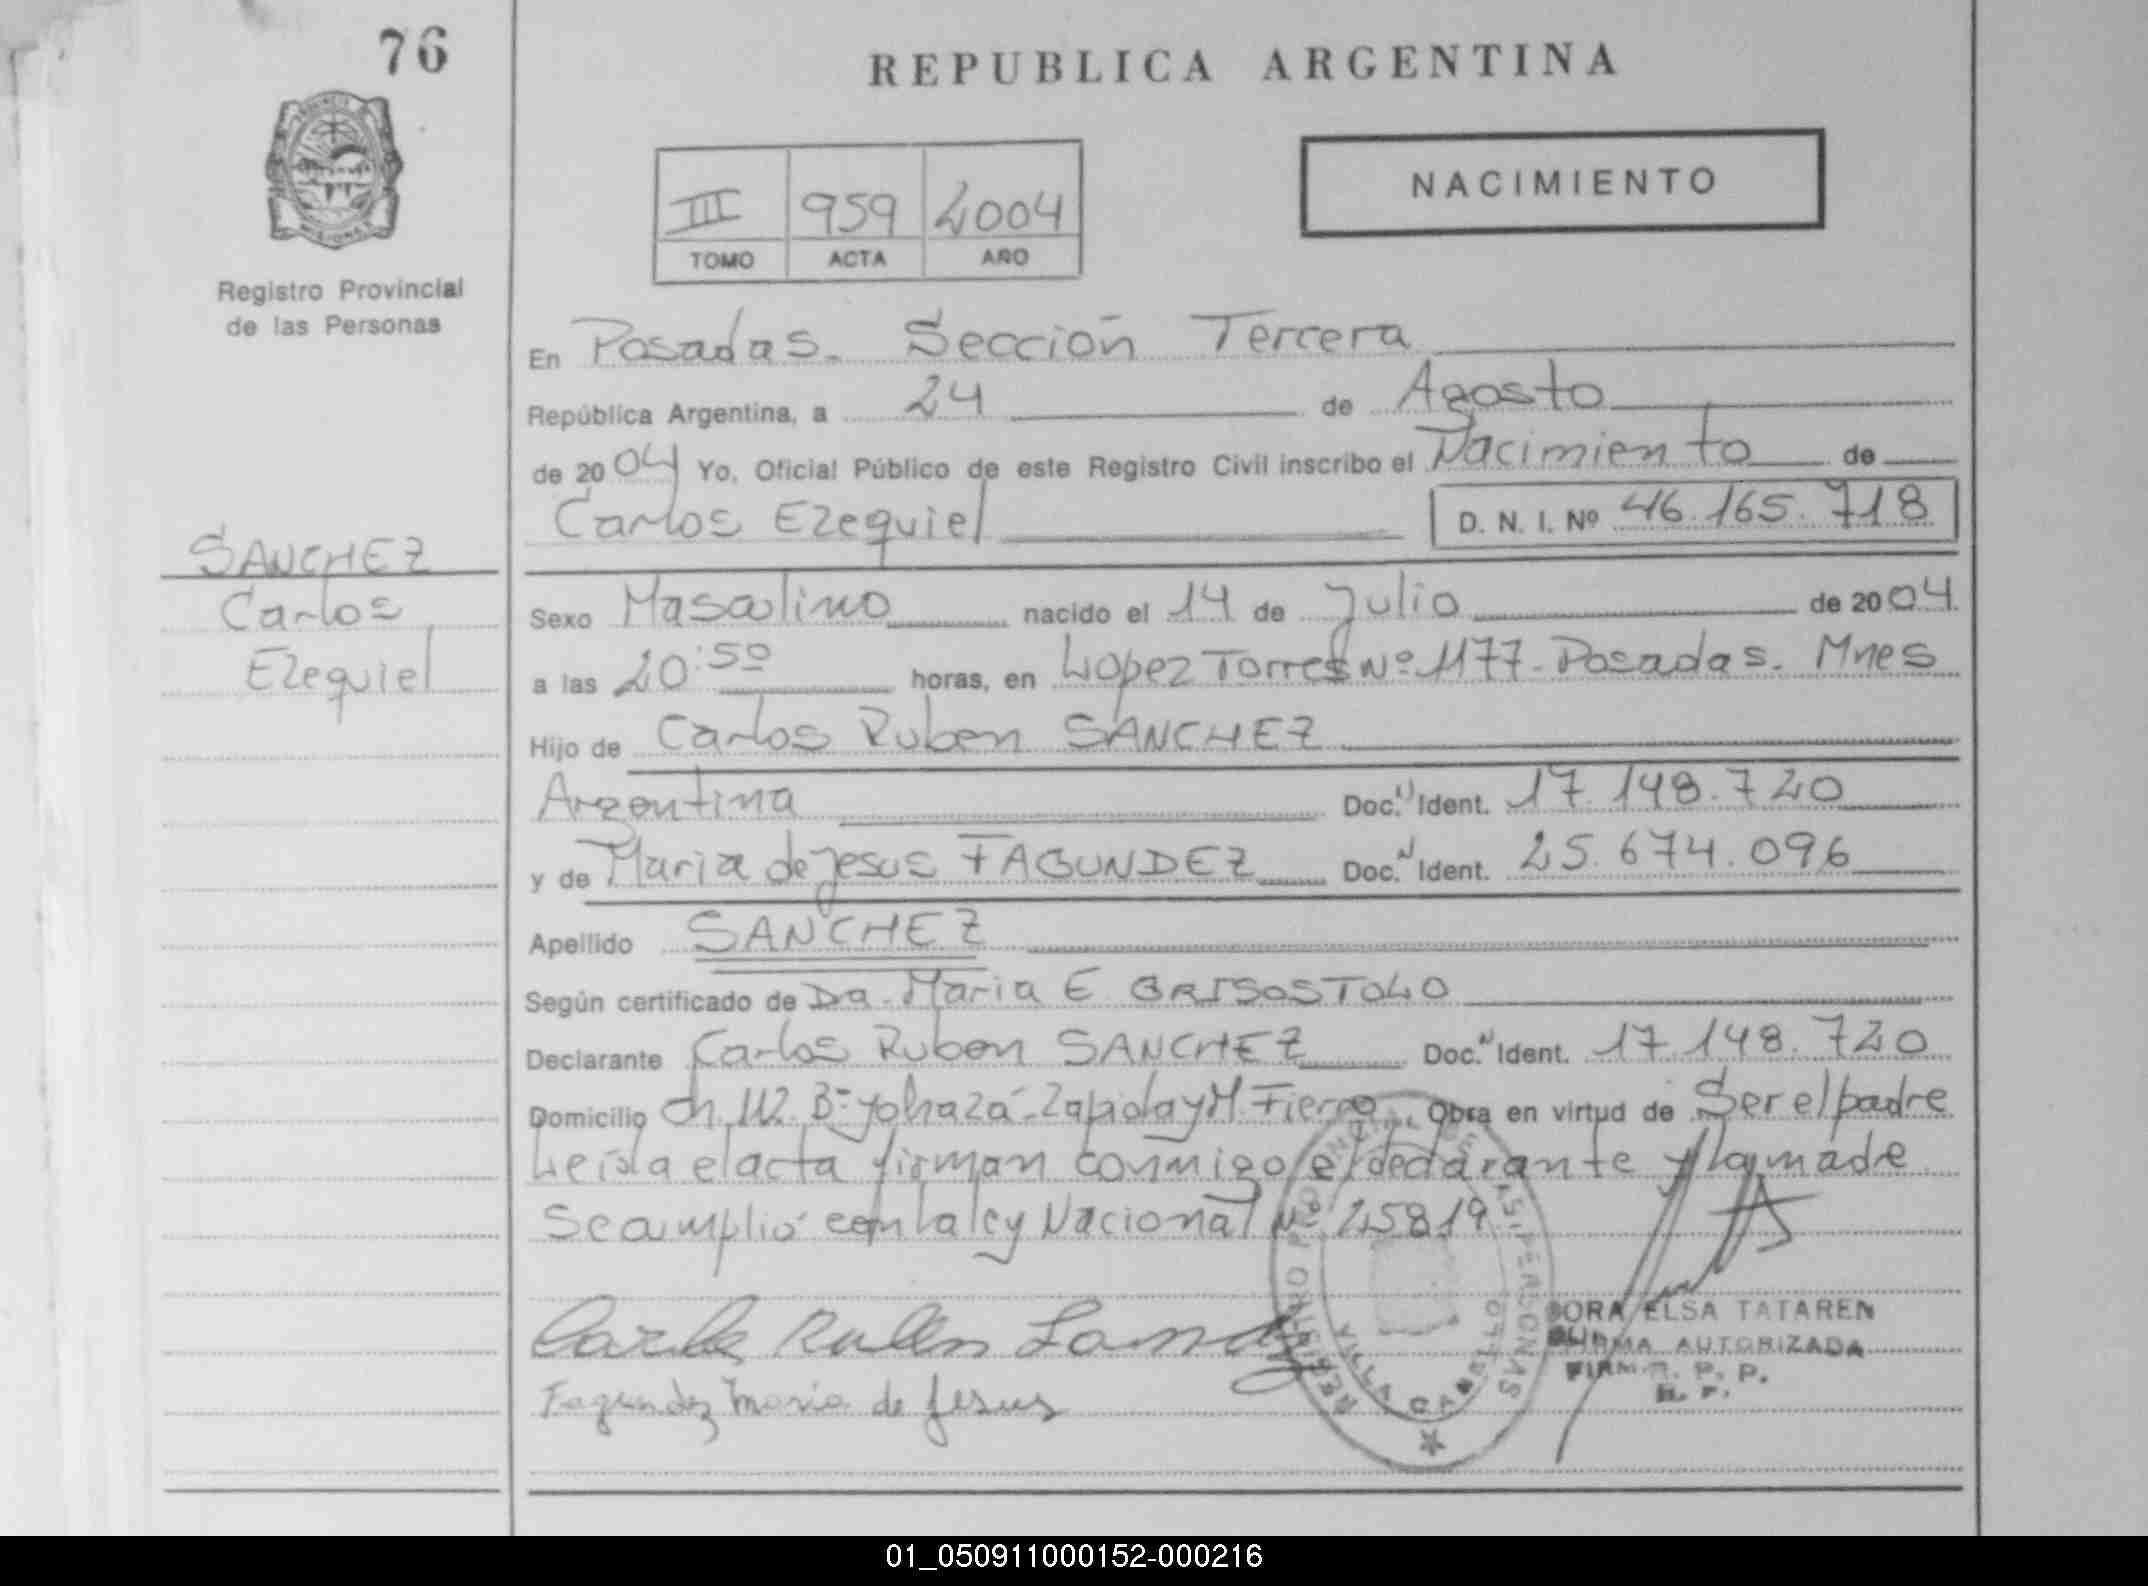 76
REPUBLICA ARGENTINA
NACIMIENTO
III 959 2004
TOMO ACTA AÑO
Registro Provincial
de las Personas
En Posadas. Sección Tercera
República Argentina, a 24 de Agosto
de 2004 Yo, Oficial Público de este Registro Civil inscribo el Nacimiento de
Carlos Ezequiel D. N. I. Nº 46.165.718
SANCHEZ
Carlos
Ezequiel
Sexo Masculino nacido el 14 de Julio de 2004.
a las 20:50 horas, en Lopez Torres Nº 1177-Posadas. Mnes
Hijo de Carlos Ruben SANCHEZ
Argentina Doc. Ident. 17.148.720
y de Maria de Jesus FAGUNDEZ Doc. Ident. 25.674.096
Apellido SANCHEZ
Según certificado de Dra. Maria E GRISOSTOLO
Declarante Carlos Ruben SANCHEZ Doc. Ident. 17.148.720
Domicilio Ch. 112. Bº Yohazá-Zapiola y M. Fierro Obra en virtud de Ser el padre
Leída el acta firman conmigo el declarante y la madre
Se cumplió con la ley Nacional Nº 25819
Carlos Ruben
Fagundez Maria de Jesus
VILLA CABELLO
DORA ELSA TATAREN
FIRMA AUTORIZADA
R. P. P.
01_050911000152-000216